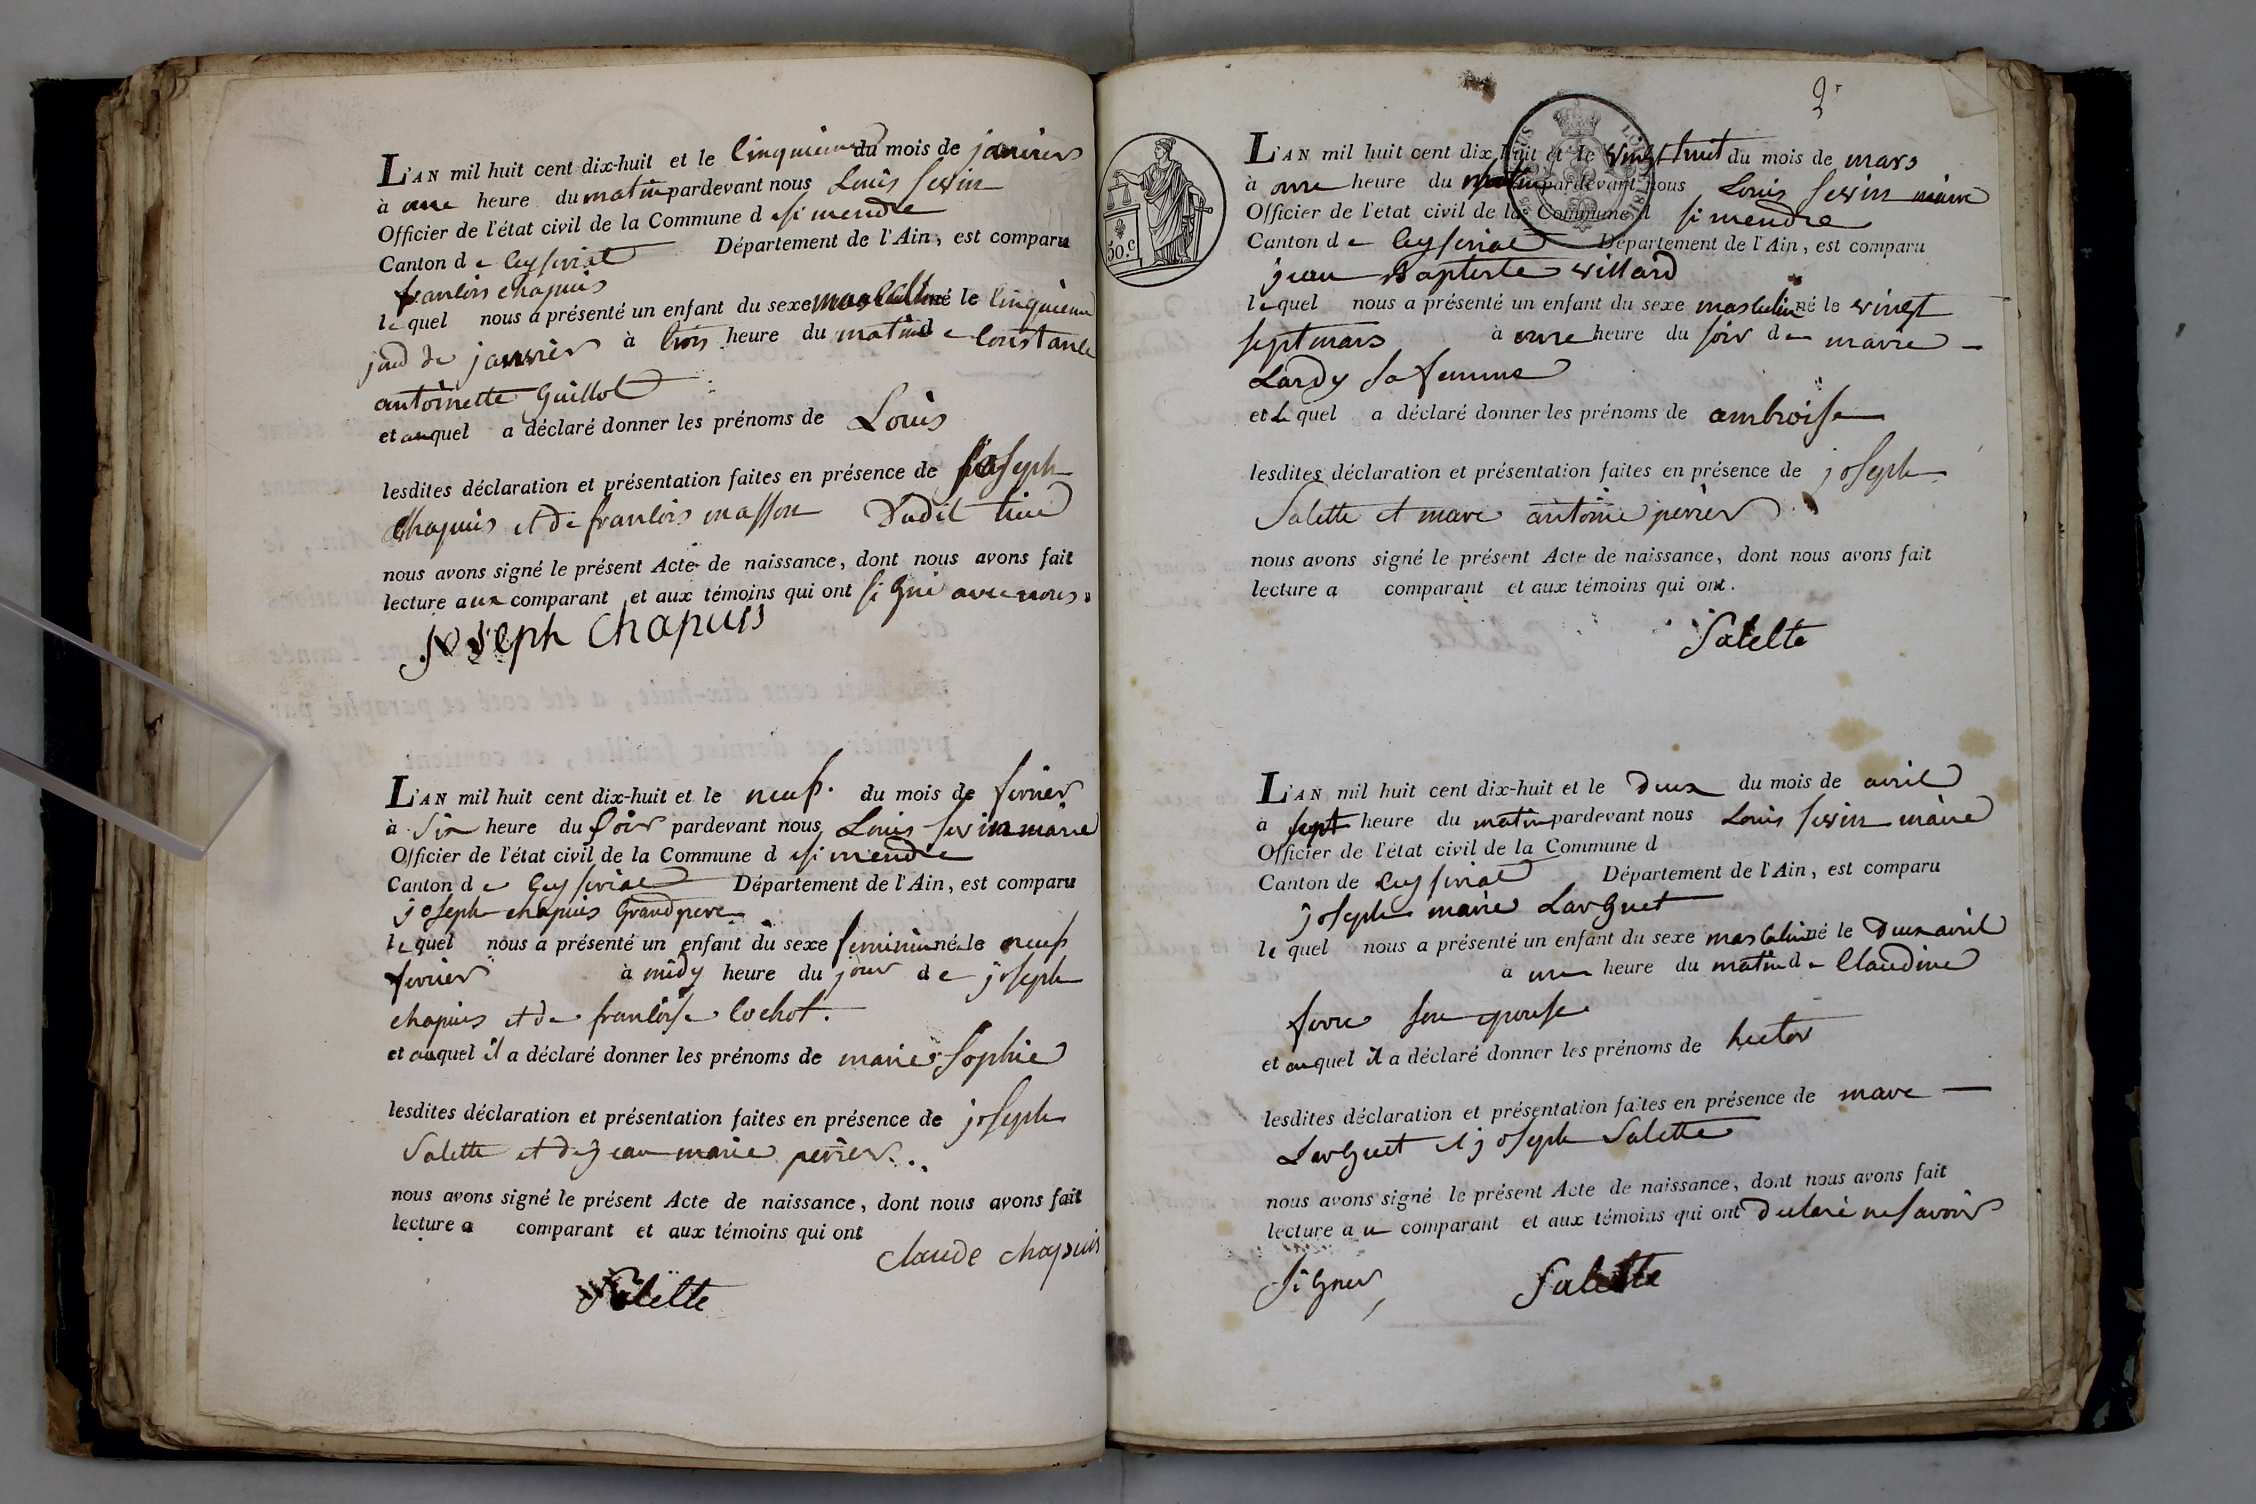 L'AN mil huit cent dix-huit et le cinquieme du mois de janvier
à une heure du matin pardevant nous Louis sevin
Officier de l'état civil de la Commune d simendre
Canton de Ceyseriat Département de l'Ain, est comparu
francois chapuis
lequel nous a présenté un enfant du sexe masculin né le cinquieme
jour de janvier à trois heure du matin de Constance
antoinette Guillot
et auquel a déclaré donner les prénoms de Louis
lesdites déclaration et présentation faites en présence de joseph
Chapuis et de francois masson dudit lieu
nous avons signé le présent Acte de naissance, dont nous avons fait
lecture aux comparant et aux témoins qui ont signé avec nous.
joseph Chapuis
L'AN mil huit cent dix-huit et le neuf. du mois de fevrier
à six heure du soir pardevant nous Louis sevin maire
Officier de l'état civil de la Commune d simendre
Canton de Ceyseriat Département de l'Ain, est comparu
joseph chapuis Grand pere
lequel nous a présenté un enfant du sexe feminin née le neuf
fevrier à midy heure du jour de joseph
chapuis et de francoise Cochot.
et auquel il a déclaré donner les prénoms de marie Sophie
lesdites déclaration et présentation faites en présence de joseph
Salette et de jean marie perrier..
nous avons signé le présent Acte de naissance, dont nous avons fait
lecture a comparant et aux témoins qui ont
Claude chapuis
Salette
2
L'AN mil huit cent dix-huit et le vingt huit du mois de mars
à onze heure du matin pardevant nous Louis sevin maire
Officier de l'état civil de la Commune d simendre
50.c
Canton de Ceyseriat Département de l'Ain, est comparu
jean Baptiste villard
lequel nous a présenté un enfant du sexe masculin né le vingt
sept mars à onze heure du soir de marie
Lardy sa femme
et le quel a déclaré donner les prénoms de ambroise
lesdites déclaration et présentation faites en présence de joseph
Salette et marc antoine perrier
nous avons signé le présent Acte de naissance, dont nous avons fait
lecture a comparant et aux témoins qui ont.
Salette
L'AN mil huit cent dix-huit et le deux du mois de avril
à sept heure du matin pardevant nous Louis sevin maire
Officier de l'état civil de la Commune d
Canton de Ceyseriat Département de l'Ain, est comparu
joseph marie Larguet
lequel nous a présenté un enfant du sexe masculin né le deux avril
à une heure du matin de Claudine
son epouse
et auquel il a déclaré donner les prénoms de hector
lesdites déclaration et présentation faites en présence de marc
Larguet et joseph Salette
nous avons signé le présent Acte de naissance, dont nous avons fait
lecture au comparant et aux témoins qui ont declaré ne savoir
signer
Salette